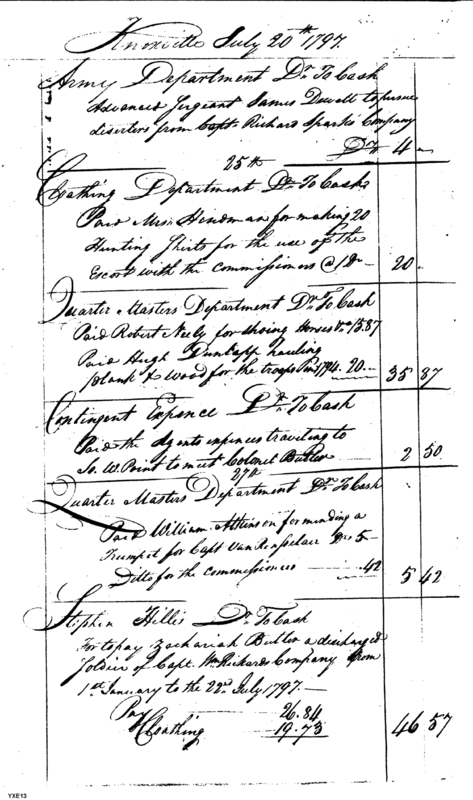 Knoxville July 20th 1797.
Army Department Dr. To Cash
Advanced Sergeant James Dewett to pursue
diserters from Capt. Richard Sparks Company
Drs 4 —
25th
Cloathing Department Dr. To Cash
Paid Mrs. Hindman for making 20
Hunting Shirts for the use of the
Escort with the commissioners @ 1 Dr 20 -
Quarter Masters Department Dr. To Cash
Paid Robert Neely for shoing Horses 15.87
Paid Hugh Dunlapp hauling
plank & wood for the troops 1794. 20.— 35 87
Contingent Expence Dr. To Cash
Paid the Agents expences traveling to
So. W. Point to meet Colonel Butler 2 50
27th
Quarter Masters Department Dr. To Cash
Paid William Atkinson for mending a
Trumpet for Capt Van Rensselair Drs 5-
Ditto for the commissioners .42 5 42
Stephen Hillis Dr. To Cash
For to pay Zachariah Butler a discharged
Soldier of Capt. Wm. Richards Company from
1st January to the 22d July 1797.—
Pay 26.84
Cloathing 19.73 46 57
YXE13